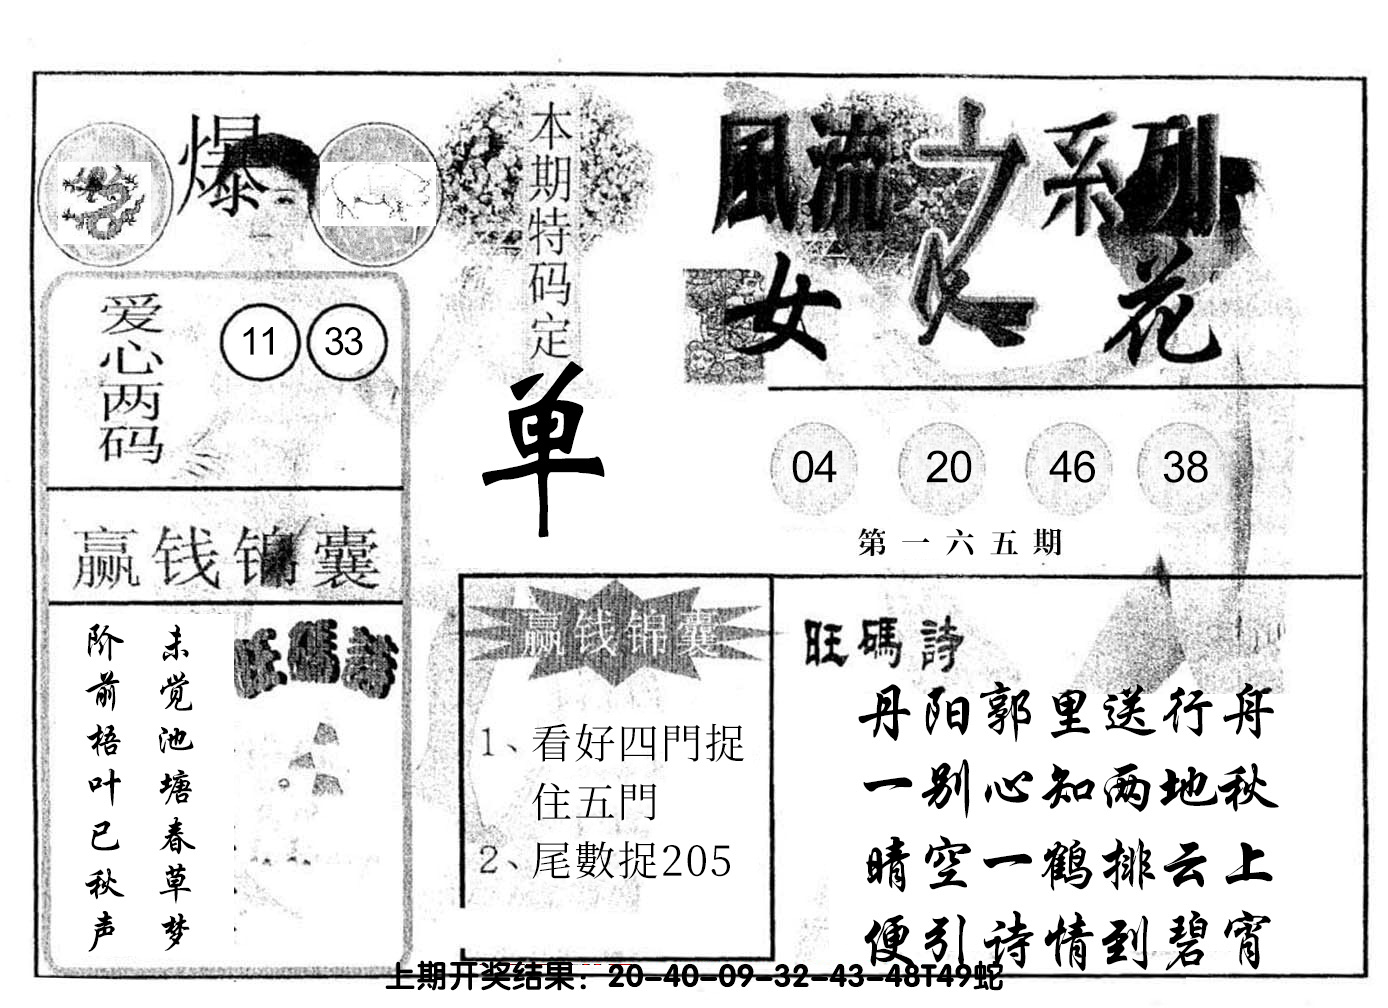 爆
本期特码定
单
風流之系列
女人花
爱心两码
11 33
04 20 46 38
第一六五期
赢钱锦囊
未觉池塘春草梦
阶前梧叶已秋声
旺碼詩
赢钱锦囊
1、看好四門捉
住五門
2、尾數捉205
旺碼詩
丹阳郭里送行舟
一别心知两地秋
晴空一鹤排云上
便引诗情到碧宵
上期开奖结果：20-40-09-32-43-48T49蛇